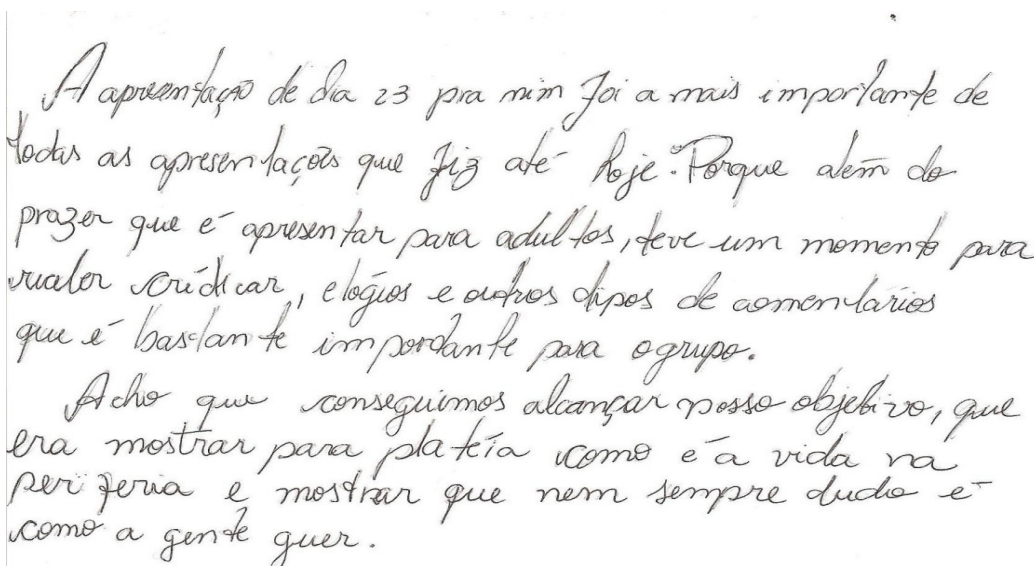 A apresentação de dia 23 pra mim foi a mais importante de
todas as apresentações que fiz até hoje. Porque além do
prazer que é apresentar para adultos, teve um momento para
receber críticar, elogios e outros tipos de comentários
que é bastante importante para o grupo.
Acho que conseguimos alcançar nosso objetivo, que
era mostrar para platéia como é a vida na
periferia e mostrar que nem sempre tudo é
como a gente quer.